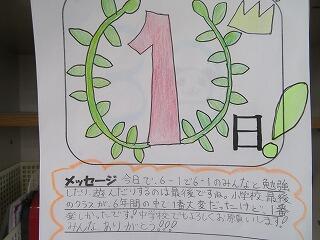 1
日!
メッセージ 今日で、6-1で6-1のみんなと勉強
したり遊んだりするのは最後ですね。小学校最後
のクラスが、6年間の中で1番大変だったけど…1番
楽しかったです!中学校でもよろしくお願いします!
みんなありがとう!!!